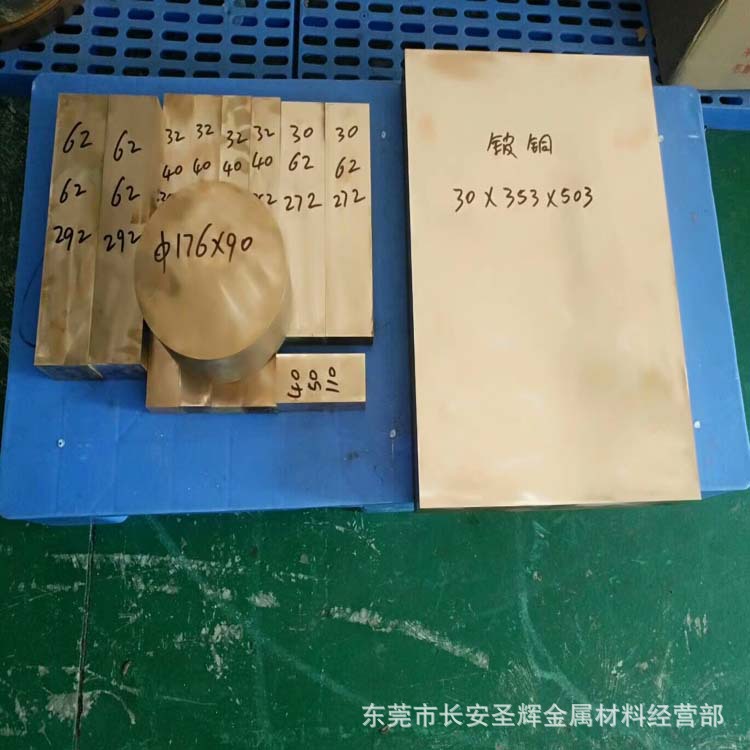 62 62 32 32 32 32 30 30
62 62 40 40 40 40 62 62
292 292 272 272
Φ176X90
40
50
110
铍铜
30X353X503
东莞市长安圣辉金属材料经营部